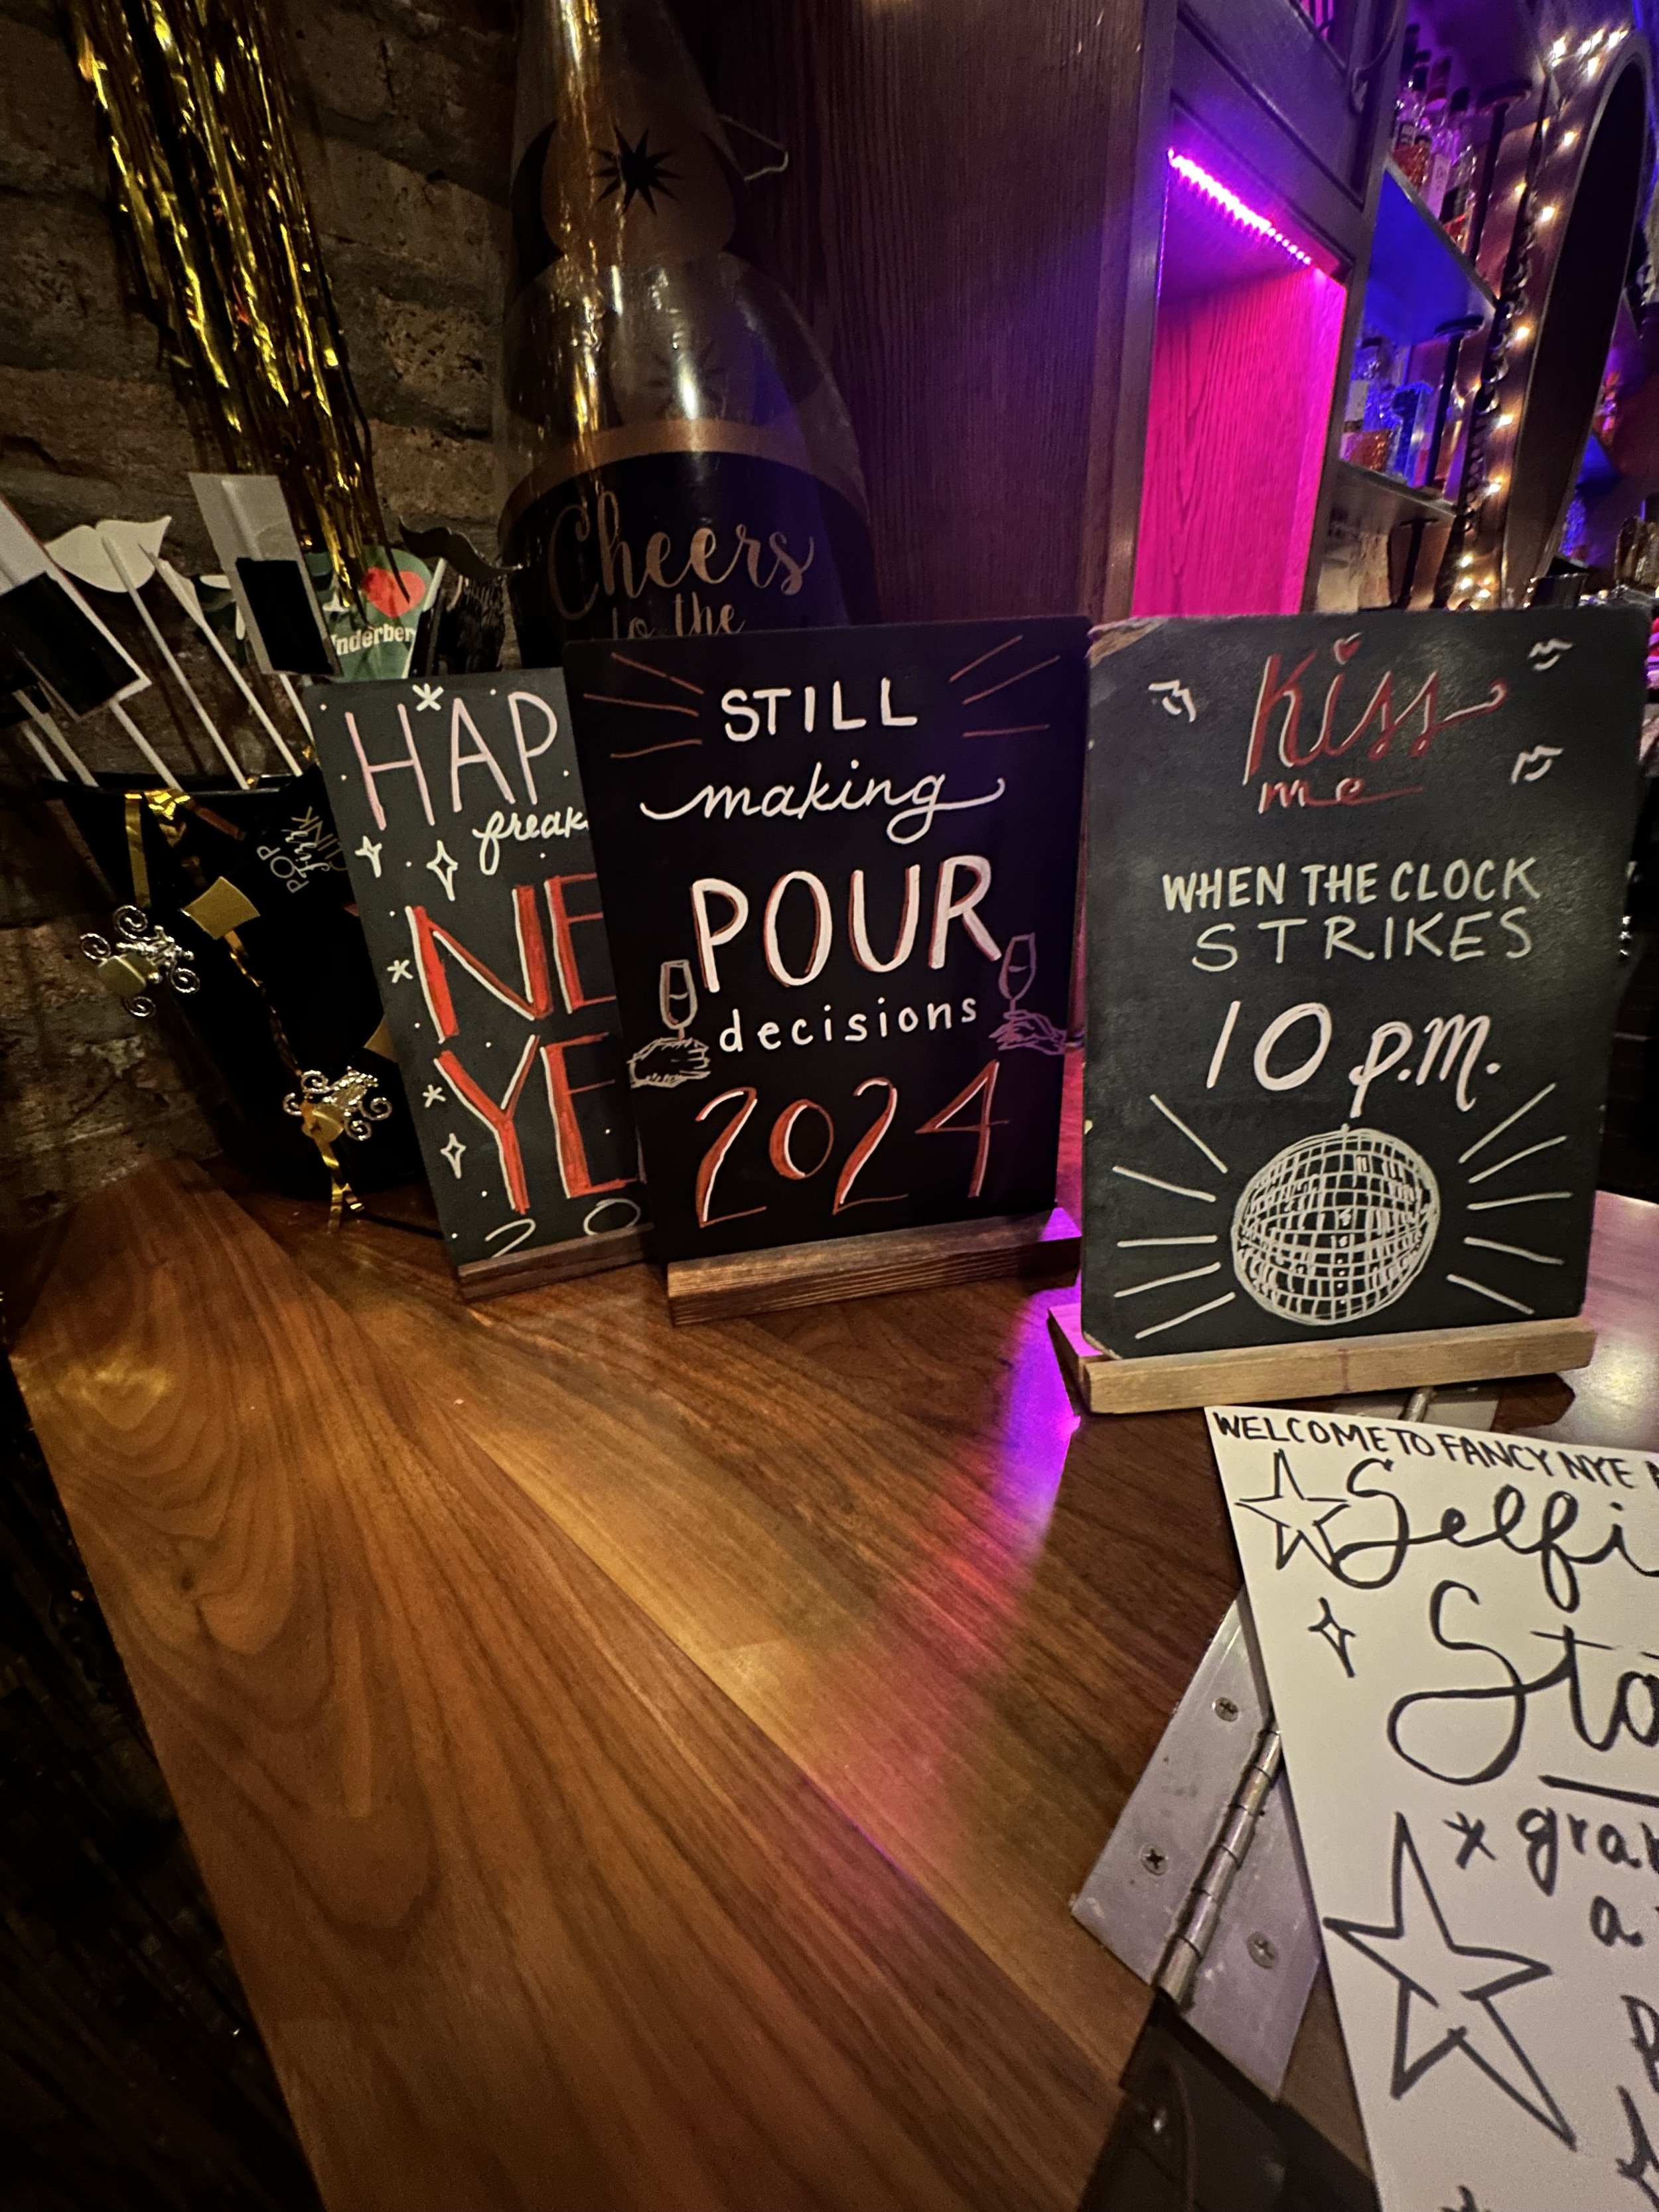 Cheers
to the
POP
fizz
HAP
NE
YE
20
STILL
making
POUR
decisions
2024
Kiss
me
WHEN THE CLOCK
STRIKES
10 p.m.
WELCOME TO FANCY NYE
Selfi
Sta
* gra
a